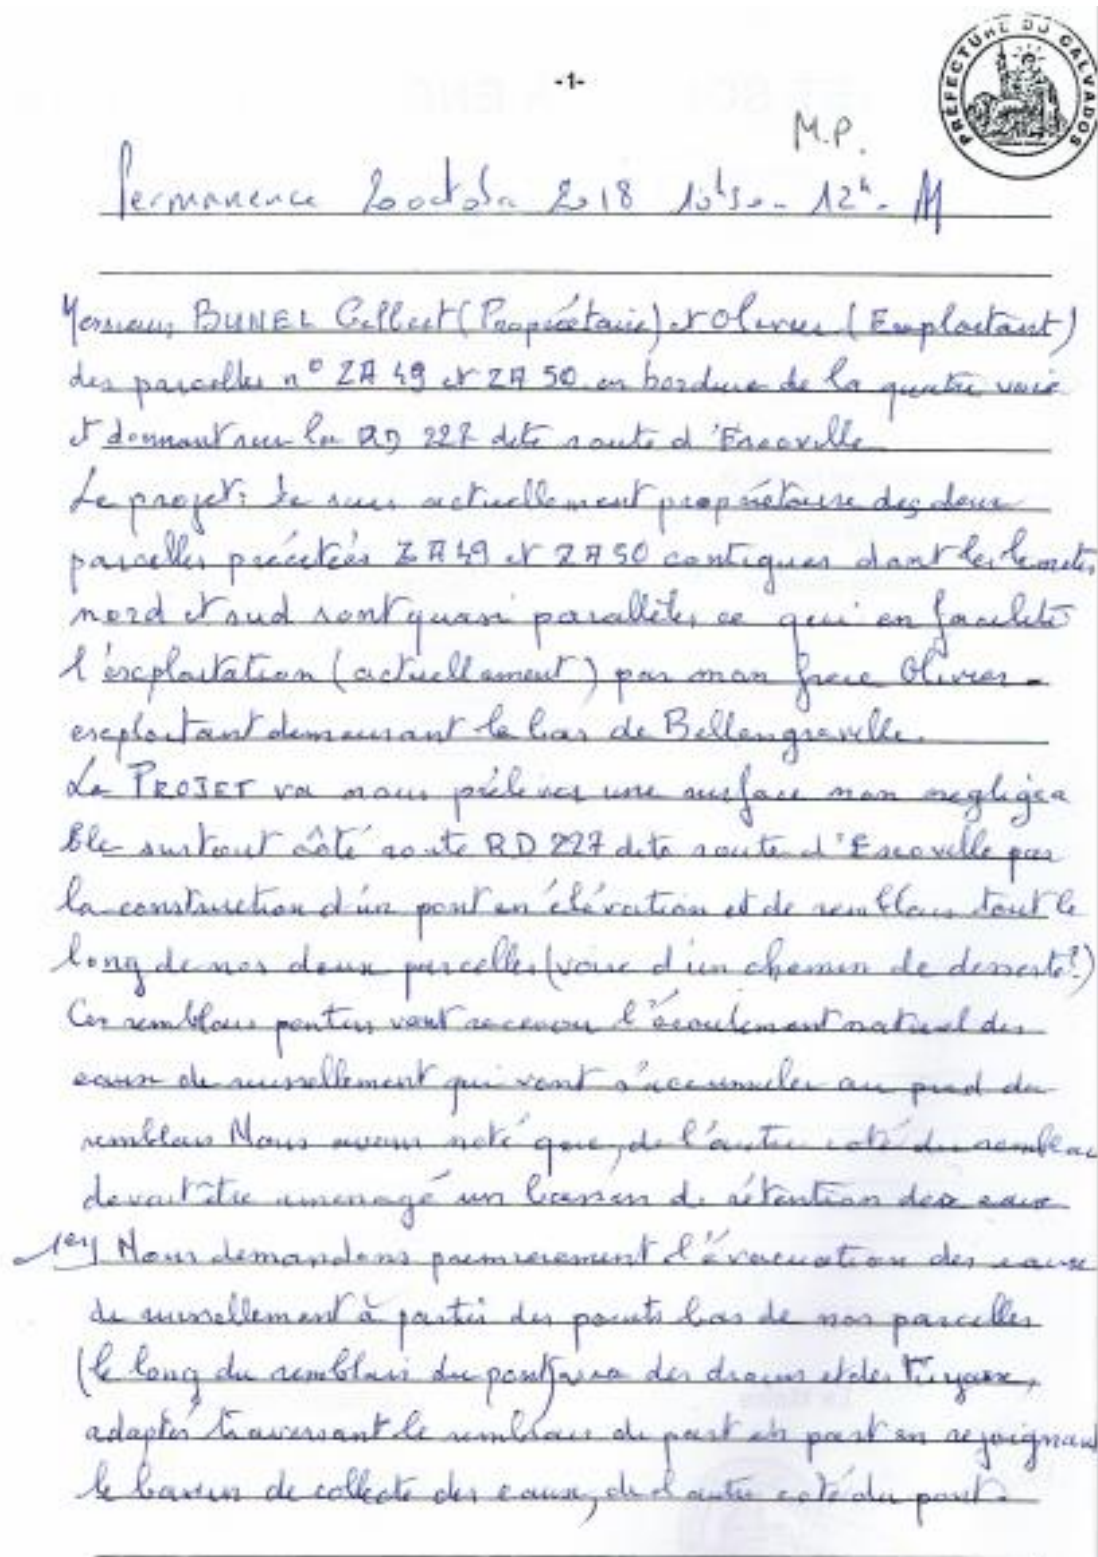 -1-
PRÉFECTURE DU CALVADOS
M.P.
Permanence 20 octobre 2018 10h30 - 12h.
Messieurs BUNEL Gilbert (Propriétaire) et Olivier (Exploitant)
des parcelles n° ZA 49 et ZA 50 en bordure de la quatre voie
et donnant sur la RD 227 dite route d'Escoville
Le projet: Je suis actuellement propriétaire des deux
parcelles précitées ZA 49 et ZA 50 contigues dont les limites
nord et sud sont quasi parallèles ce qui en facilite
l'exploitation (actuellement) par mon frere Olivier -
exploitant demeurant le bas de Bellengreville.
Le PROJET va nous prélever une surface non negligea
ble surtout côté route RD 227 dite route d'Escoville par
la construction d'un pont en élévation et de remblais tout le
long de nos deux parcelles (voire d'un chemin de desserte?)
Ces remblais pentus vont recevoir l'écoulement naturel des
eaux de ruissellement qui vont s'accumuler au pied du
remblais Nous avons noté que, de l'autre coté du remblai
devait être amenagé un bassin de rétention des eaux
1er) Nous demandons premierement l'évacuation des eaux
de ruissellement à partir des points bas de nos parcelles
(le long du remblais du pont) via des drains et des tuyaux,
adaptés traversant le remblais de part en part en rejoignant
le bassin de collecte des eaux, de l'autre coté du pont.